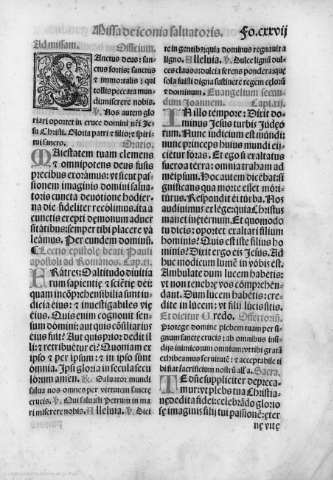 Missa de iconia saluatoris. Fo.cxxvij
Ad missam. Officium.
SAnctus deus: san
ctus fortis: sanctus
& immortalis: q̄ui
tollis peccata mun
di miserere nobis.
Nos autem glo
riari oportet in cruce domini nr̄i Je
su Christi. Gloria patri & filio: & spiri
tui sancto. Oratio.
MAiestatem tuam clemens
& omnipotens deus supplices
precibus exoramus: vt sicut pas
sionem imaginis domini salua
toris cuncta deuotione hodier
na die fideliter recolimus: ita a
cunctis erepti demonum aduer
sitatibus: semper tibi placere va
leamus. Per eundem dominum.
Lectio epistole beati Pauli
apostoli ad Romanos. Cap.xi.
FRatres: O altitudo diuitia
rum sapientie & sciētie dei:
quam incōprehensibilia sunt iu
dicia eius & inuestigabiles vie
eius. Quis enim cognouit sen
sum domini: aut quis cōsiliarius
eius fuit? Aut quis prior dedit il
li: & retribuetur ei? Quoniam ex
ipso & per ipsum: & in ipso sunt
omnia. Ipsi gloria in secula secu
lorum amen. Saluator mundi
salua nos omnes per virtutem sancte
crucis. Qui saluasti Petrum in ma
ri miserere nobis. Alleluia. Dici
te in gentibus: quia dominus regnauit a
ligno. Alleluia. Dulce lignū dul
ces clauos dulcia ferens pondera: que
sola fuisti digna sustinere regem celorū
& dominum. Euangelium secun
dum Joannem. Capi.xij.
IN illo tempore: Dixit do
minus Jesus turbis Judeo
rum. Nunc iudicium est mūdi:
nunc princeps huius mundi eii
cietur foras. Et ego si exaltatus
fuero a terra: omnia traham ad
meipsum. Hoc autem dicebat si
gnificans qua morte esset mori
turus. Respondit ei turba. Nos
audiuimus ex lege quia Christus
manet in eternum. Et quomodo
tu dicis: oportet exaltari filium
hominis? Quis est iste filius ho
minis? Dixit ergo eis Jesus. Ad
huc modicum lumē in vobis est.
Ambulate dum lucem habetis:
& non tenebre vos comprehen
dant. Dum lucem habetis: cre
dite in lucem: vt filij lucis sitis.
Et dicitur Credo. Offertoriū.
Protege domine plebem tuam per si
gnum sancte crucis: ab omnibus insi
dijs inimicorum omnium: vt tibi gratā
exhibeamus seruitutē: & acceptabile ti
bi fiat sacrificium nostrū alla. Secre.
TE dn̄e suppliciter depreca
mur: vt plebs tua Christia
na dedita fidei: celebrādo glorio
se imaginis filij tui passionē: eter